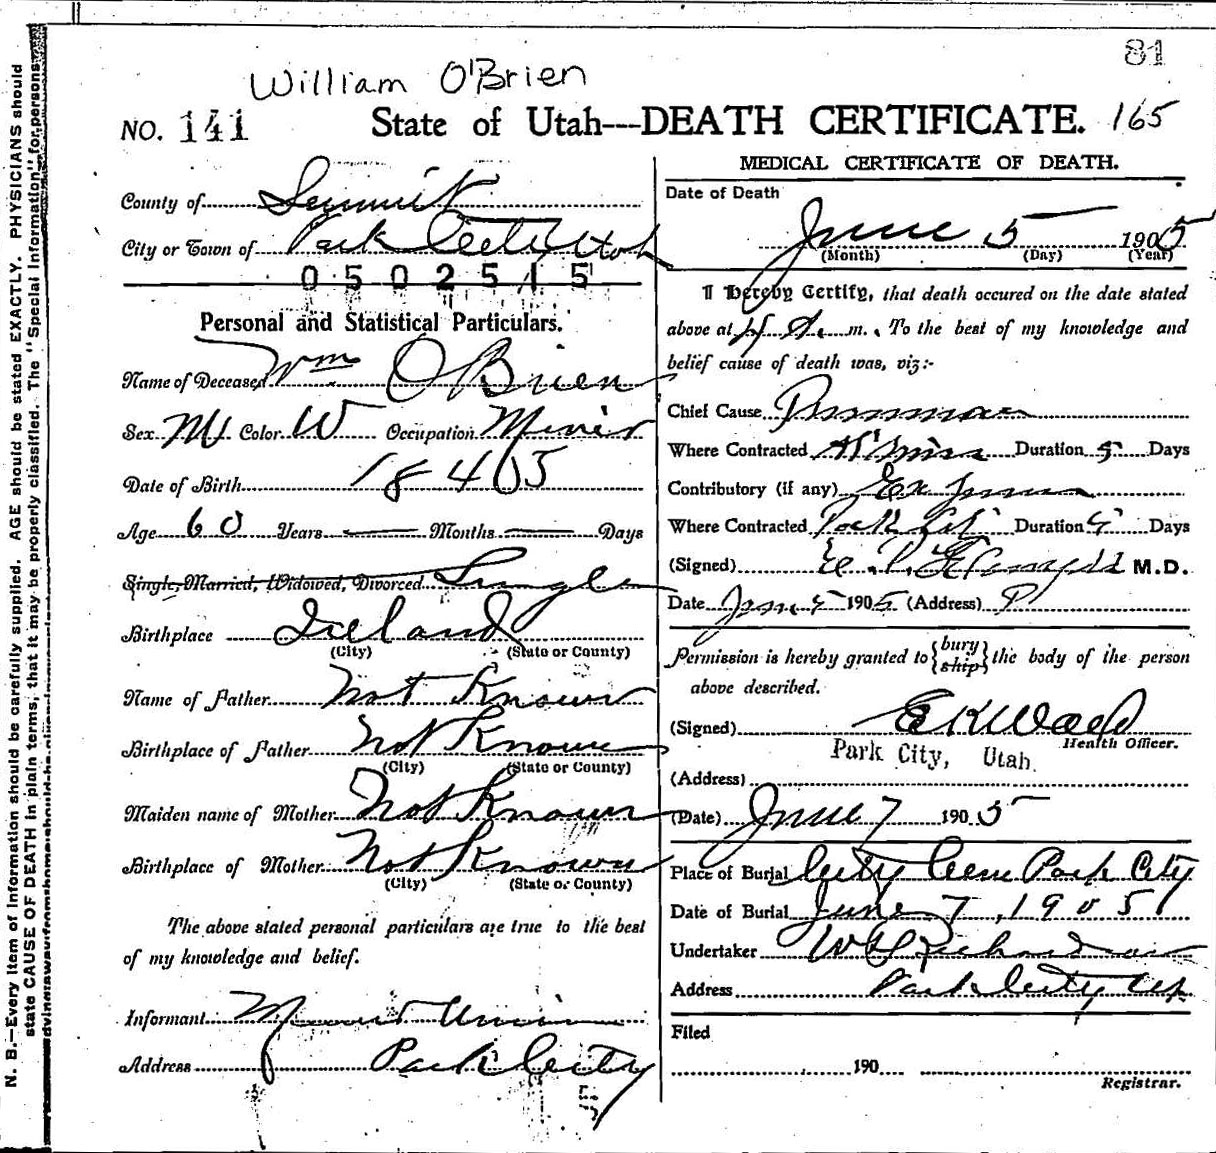 81
William O'Brien
NO. 141 State of Utah---DEATH CERTIFICATE. 165
County of Summit
City or Town of Park City Utah
0502515
Personal and Statistical Particulars.
Name of Deceased Wm O'Brien
Sex M Color W Occupation Miner
Date of Birth 1845
Age 60 Years Months Days
Single, Married, Widowed, Divorced Single
Birthplace Ireland
(City) (State or County)
Name of Father Not Known
Birthplace of Father Not Known
(City) (State or County)
Maiden name of Mother Not Known
Birthplace of Mother Not Known
(City) (State or County)
The above stated personal particulars are true to the best
of my knowledge and belief.
Informant Union
Address Park City
MEDICAL CERTIFICATE OF DEATH.
Date of Death
June 5 1905
(Month) (Day) (Year)
I Hereby Certify, that death occured on the date stated
above at 4 A. m. To the best of my knowledge and
belief cause of death was, viz:-
Chief Cause
Where Contracted Duration 5 Days
Contributory (if any)
Where Contracted Park City Duration 5 Days
(Signed) M.D.
Date June 5 1905 (Address) P
Permission is hereby granted to {bury
ship} the body of the person
above described.
(Signed)
Health Officer.
Park City, Utah.
(Address)
(Date) June 7 1905
Place of Burial City Cem Park City
Date of Burial June 7, 1905
Undertaker Richardson
Address Park City Ut
Filed
190
Registrar.
N. B.—Every item of Information should be carefully supplied. AGE should be stated EXACTLY. PHYSICIANS should
state CAUSE OF DEATH in plain terms, that it may be properly classified. The "Special Information" for persons
dying away from home should be given